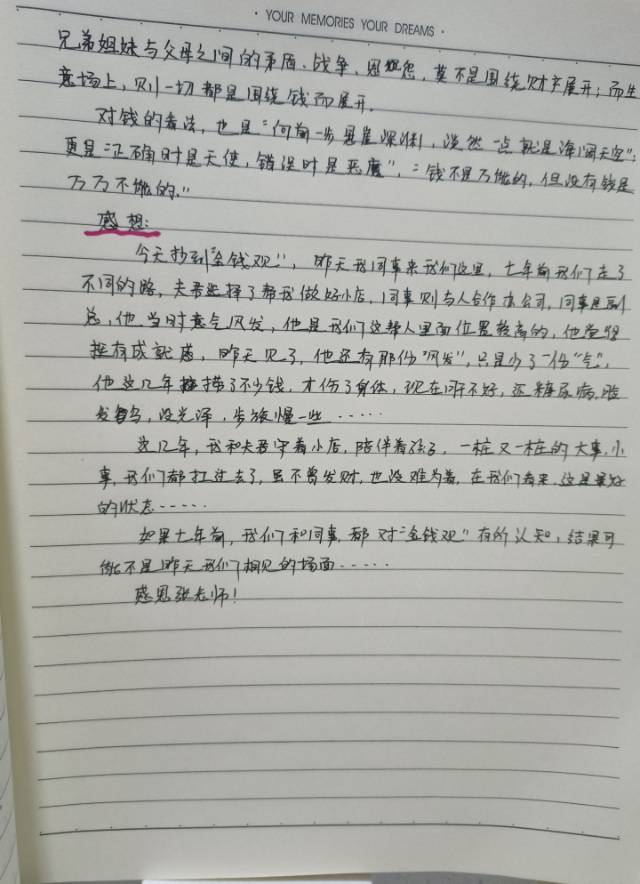 · YOUR MEMORIES YOUR DREAMS ·
兄弟姐妹与父母之间的矛盾、战争、恩怨,莫不是围绕财产展开;而生
意场上,则一切都是围绕钱而展开.
对钱的看法,也是"向前一步悬崖深渊,淡然一点就是海阔天空";
更是"正确时是天使,错误时是恶魔","钱不是万能的,但没有钱是
万万不能的."
感想:
今天抄到"金钱观",昨天我同事来我们这里,七年前我们走了
不同的路,夫君选择了帮我做好小店,同事则与人合作办公司,同事是副
总,他当时意气风发,他是我们这帮人里面位置较高的,他觉得
挺有成就感,昨天见了,他还有那份"风发",只是少了一份"气",
他这几年挣了不少钱,才伤了身体,现在肝不好,还糖尿病,脸
发乌,没光泽,步旅慢一些……
这几年,我和夫君守着小店,陪伴着孩子,一桩又一桩的大事,小
事,我们都扛过去了,虽不曾发财,也没难为着,在我们看来,这是最好
的状态……
如果七年前,我们和同事,都对"金钱观"有所认知,结果可
能不是昨天我们相见的场面……
感恩张老师!